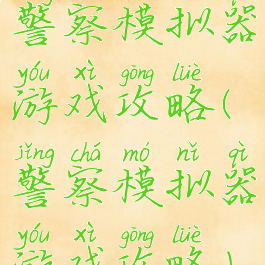 警察模拟器
yóu xì gōng lüè
游戏攻略(
jǐng chá mó nǐ qì
警察模拟器
yóu xì gōng lüè
游戏攻略)